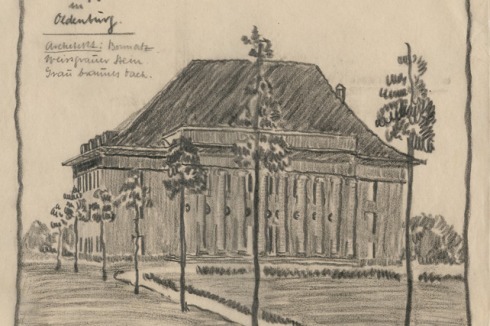 in
Oldenburg.
Architekt: Bonnatz
Weissgrauer Stein
Grau braunes Dach.